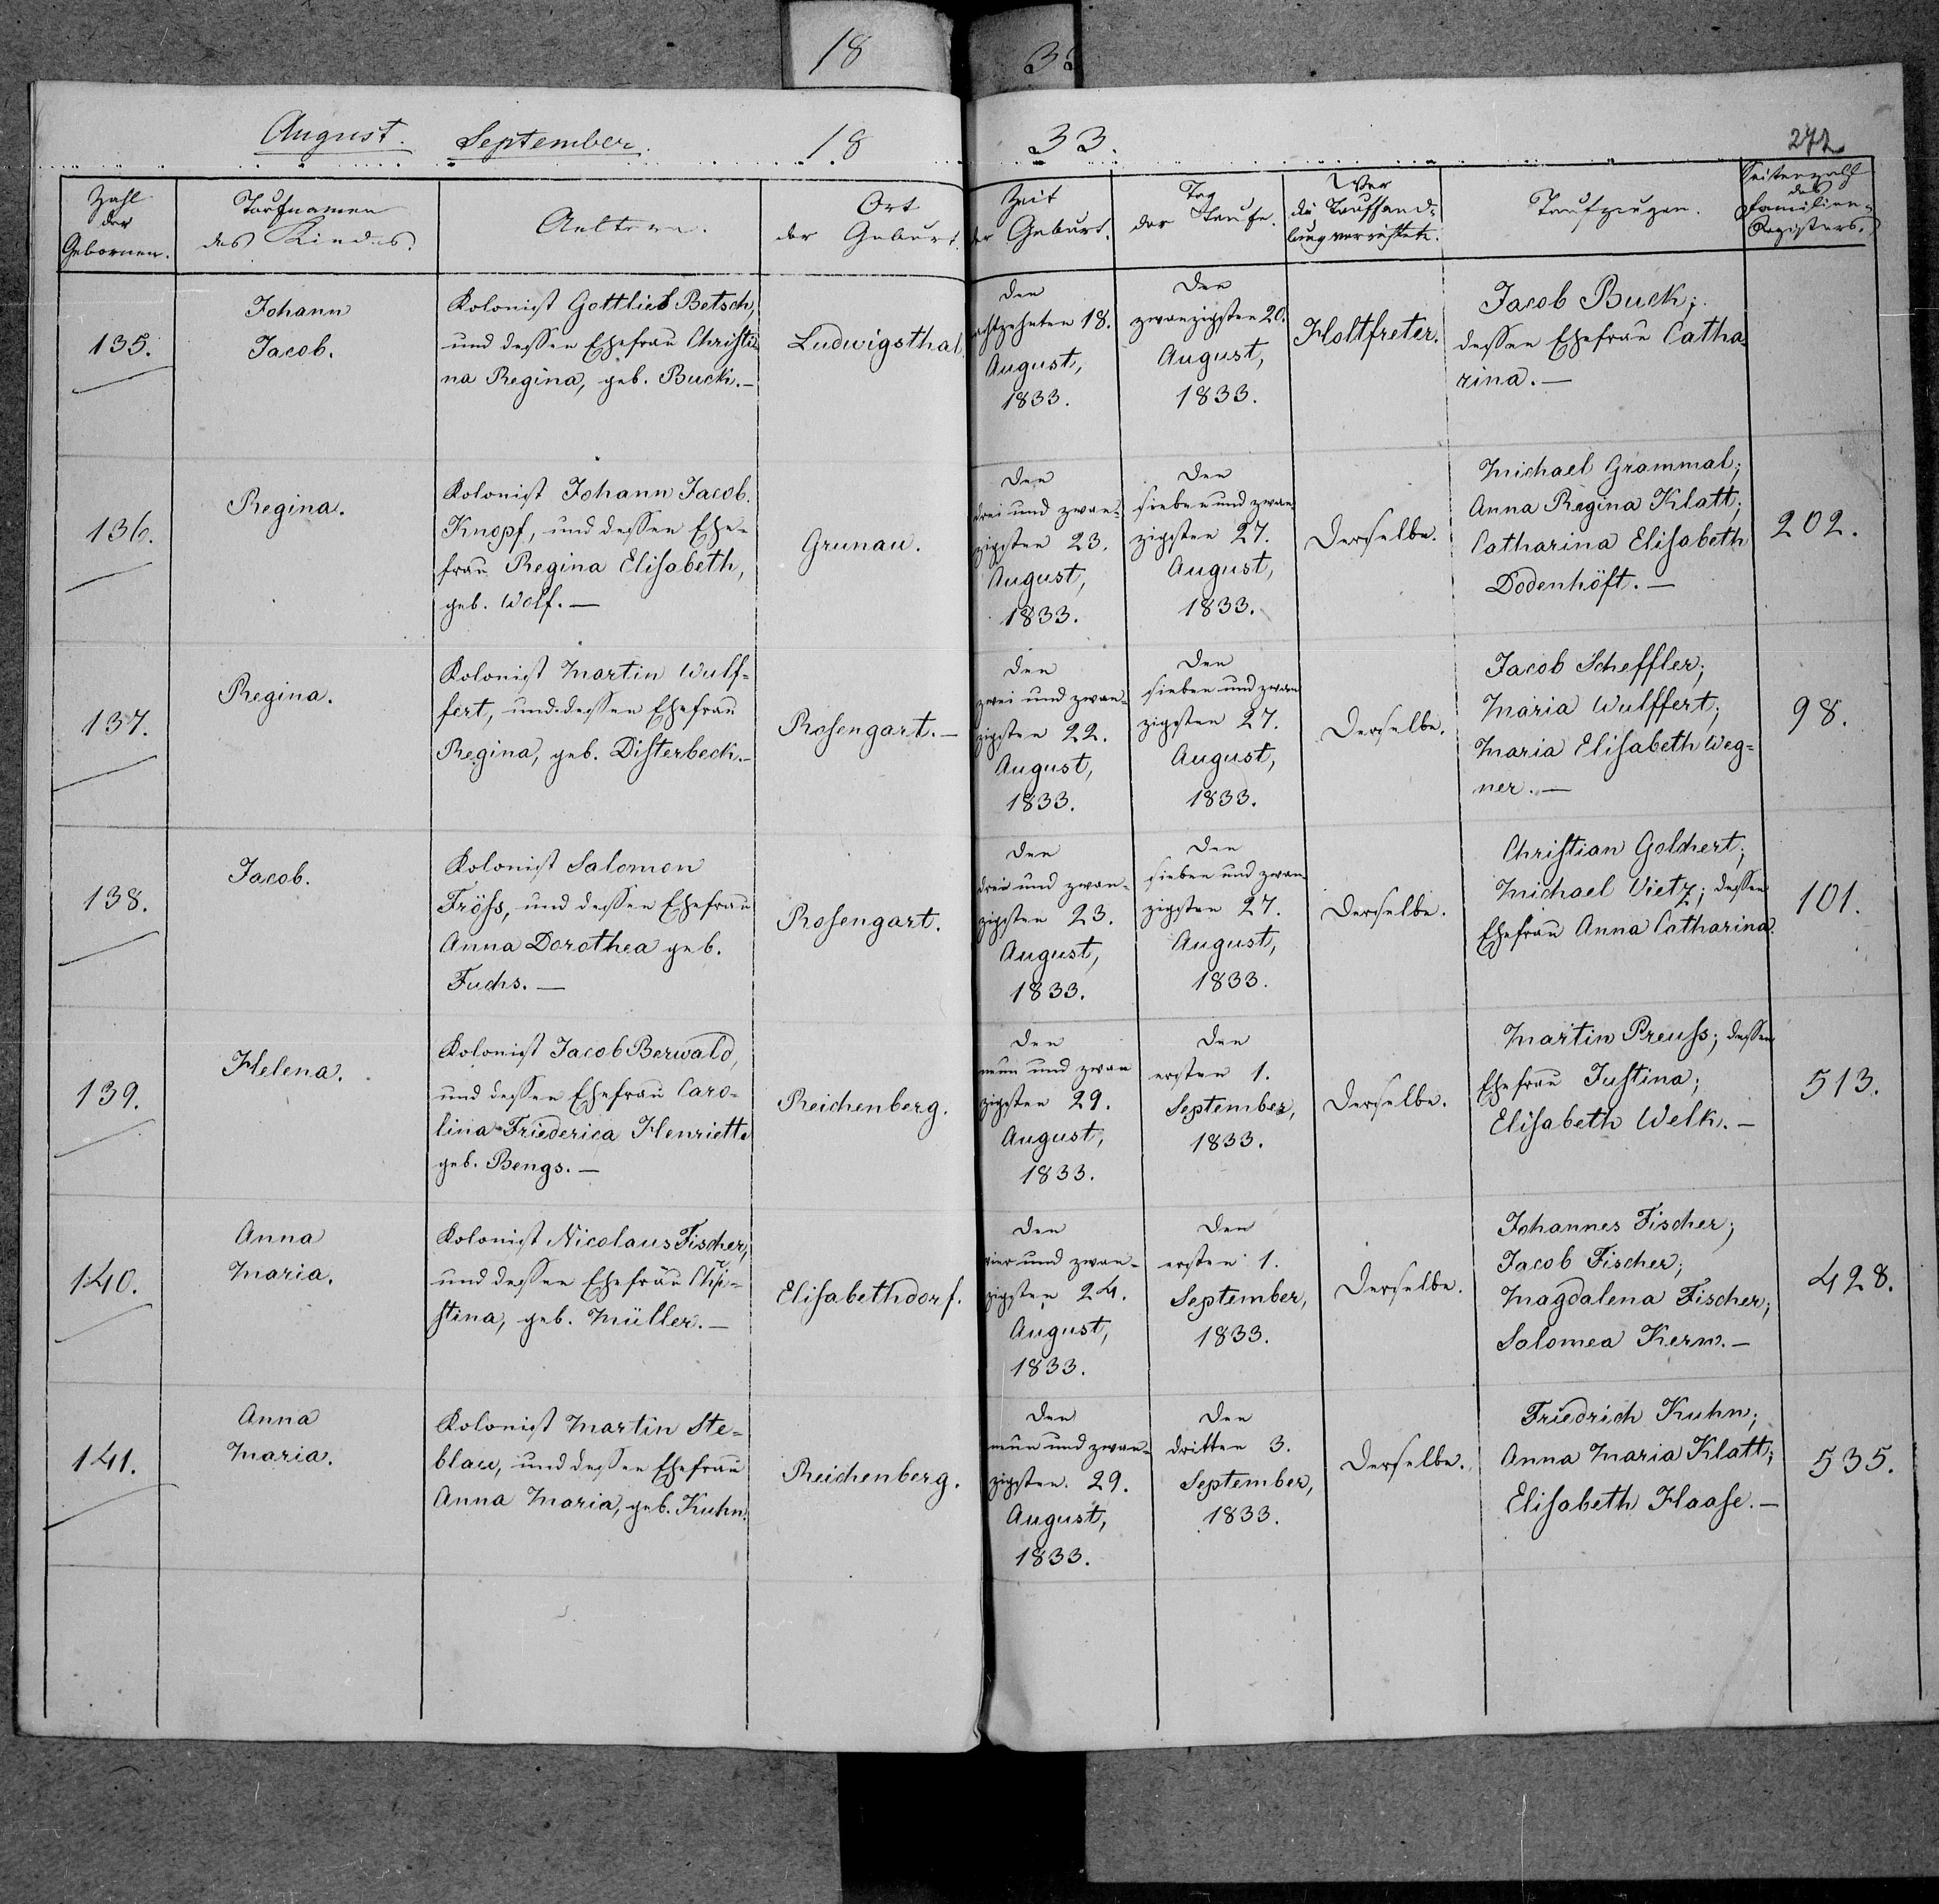 18
33
August. September. 18
33.
272
Zahl
der
Gebornen.
Taufnamen
des Kindes.
Aeltern.
Ort
der Geburt.
Zeit
der Geburt.
Tag
der Taufe.
Wer
die Taufhand-
lung verrichtete.
Taufzeugen.
Seitenzahl
des
Familien-
Registers.
135.
Johann
Jacob.
Kolonist Gottlieb Betsch,
und dessen Ehefrau Christi-
na Regina, geb. Buck.—
Ludwigsthal
Den
achtzehnten 18.
August,
1833.
Den
zwanzigsten 20.
August,
1833.
Holtfreter.
Jacob Buck;
dessen Ehefrau Catha-
rina.—
136.
Regina.
Kolonist Johann Jacob
Knopf, und dessen Ehe-
frau Regina Elisabeth,
geb. Wolf.—
Grunau.
Den
drei und zwan-
zigsten 23.
August,
1833.
Den
sieben und zwan
zigsten 27.
August,
1833.
Derselbe.
Michael Grammal;
Anna Regina Klatt;
Catharina Elisabeth
Dodenhöft.—
202.
137.
Regina.
Kolonist Martin Wulf-
fert, und dessen Ehefrau
Regina, geb. Disterbeck.—
Rosengart.—
Den
zwei und zwan-
zigsten 22.
August,
1833.
Den
sieben und zwan
zigsten 27.
August,
1833.
Derselbe.
Jacob Scheffler;
Maria Wulffert;
Maria Elisabeth Weg-
ner.—
98.
138.
Jacob.
Kolonist Salomon
Fröss, und dessen Ehefrau
Anna Dorothea geb.
Fuchs.—
Rosengart.
Den
drei und zwan-
zigsten 23.
August,
1833.
Den
sieben und zwan
zigsten 27.
August,
1833.
Derselbe.
Christian Goldhert;
Michael Vietz; dessen
Ehefrau Anna Catharina.
101.
139.
Helena.
Kolonist Jacob Berwald,
und dessen Ehefrau Caro-
lina Friederica Henriette
geb. Bengs.—
Reichenberg.
Den
neun und zwan
zigsten 29.
August,
1833.
Den
ersten 1.
September,
1833.
Derselbe.
Martin Preuss; dessen
Ehefrau Justina;
Elisabeth Welk.—
513.
140.
Anna
Maria.
Kolonist Nicolaus Fischer,
und dessen Ehefrau Chri-
stina, geb. Müller.—
Elisabethdorf.
Den
vier und zwan-
zigsten 24.
August,
1833.
Den
ersten 1.
September,
1833.
Derselbe.
Johannes Fischer;
Jacob Fischer;
Magdalena Fischer;
Salomea Kern.—
428.
141.
Anna
Maria.
Kolonist Martin Ste-
blau, und dessen Ehefrau
Anna Maria, geb. Kuhn.
Reichenberg.
Den
neun und zwan-
zigsten 29.
August,
1833.
Den
dritten 3.
September,
1833.
Derselbe.
Friedrich Kuhn;
Anna Maria Klatt;
Elisabeth Haase.—
535.